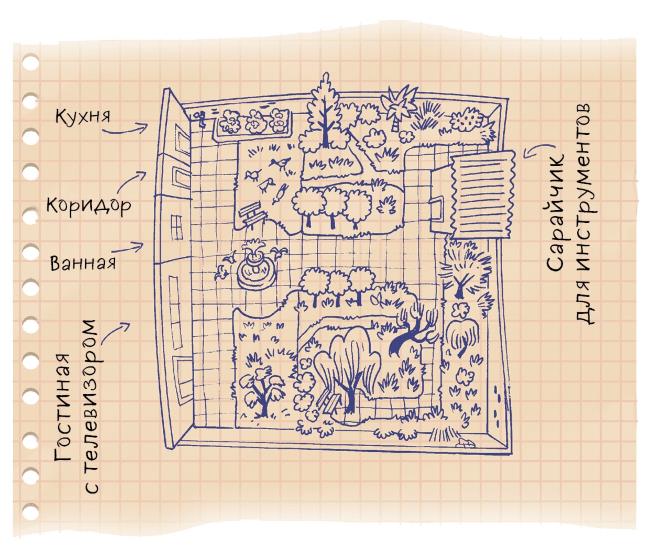 Кухня
Коридор
Ванная
Гостиная
с телевизором
Сарайчик
для инструментов